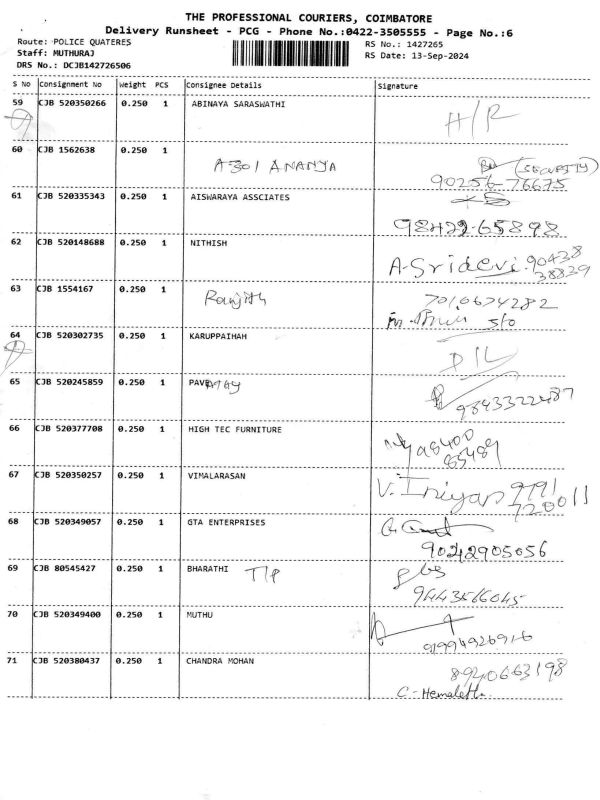 THE PROFESSIONAL COURIERS, COIMBATORE
Delivery Runsheet - PCG - Phone No.:0422-3505555 - Page No.:6
Route: POLICE QUATERES RS No.: 1427265
Staff: MUTHURAJ RS Date: 13-Sep-2024
DRS No.: DCJB142726506
S No Consignment No Weight PCS Consignee Details Signature
59 CJB 520350266 0.250 1 ABINAYA SARASWATHI
H/R
60 CJB 1562638 0.250 1
A301 ANANYA (SECURITY)
90256-76675
61 CJB 520335343 0.250 1 AISWARAYA ASSCIATES
98422-65898
62 CJB 520148688 0.250 1 NITHISH
A-Sridevi. 90438
38829
63 CJB 1554167 0.250 1
Ranjith 7010674282
s/o
64 CJB 520302735 0.250 1 KARUPPAIHAH
D/L
65 CJB 520245859 0.250 1
9843322487
66 CJB 520377708 0.250 1 HIGH TEC FURNITURE
85489
67 CJB 520350257 0.250 1 VIMALARASAN
V. Iniyan 9791
720011
68 CJB 520349057 0.250 1 GTA ENTERPRISES
9042905056
69 CJB 80545427 0.250 1 BHARATHI T/P
9443566045
70 CJB 520349400 0.250 1 MUTHU
9994926916
71 CJB 520380437 0.250 1 CHANDRA MOHAN
8940663198
C-Hemalatha.